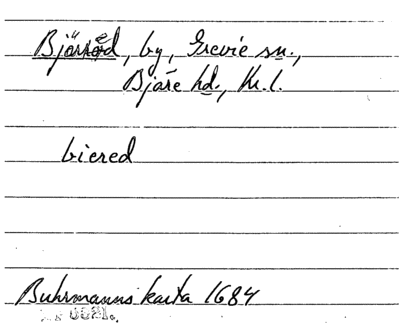 Bjärred, by, Grevie sn.,
Bjäre hd., Kr. l.
biered
Buhrmanns karta 1684